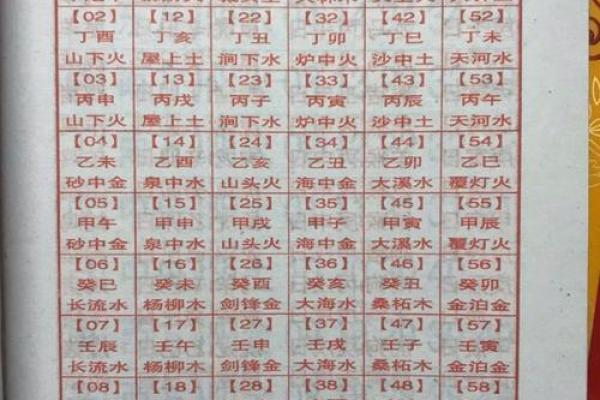 【02】 【12】 【22】 【32】 【42】 【52】
丁酉 丁亥 丁丑 丁卯 丁巳 丁未
山下火 屋上土 涧下水 炉中火 沙中土 天河水
【03】 【13】 【23】 【33】 【43】 【53】
丙申 丙戌 丙子 丙寅 丙辰 丙午
山下火 屋上土 涧下水 炉中火 沙中土 天河水
【04】 【14】 【24】 【34】 【44】 【54】
乙未 乙酉 乙亥 乙丑 乙卯 乙巳
砂中金 泉中水 山头火 海中金 大溪水 覆灯火
【05】 【15】 【25】 【35】 【45】 【55】
甲午 甲申 甲戌 甲子 甲寅 甲辰
砂中金 泉中水 山头火 海中金 大溪水 覆灯火
【06】 【16】 【26】 【36】 【46】 【56】
癸巳 癸未 癸酉 癸亥 癸丑 癸卯
长流水 杨柳木 剑锋金 大海水 桑柘木 金泊金
【07】 【17】 【27】 【37】 【47】 【57】
壬辰 壬午 壬申 壬戌 壬子 壬寅
长流水 杨柳木 剑锋金 大海水 桑柘木 金泊金
【08】 【18】 【28】 【38】 【48】 【58】